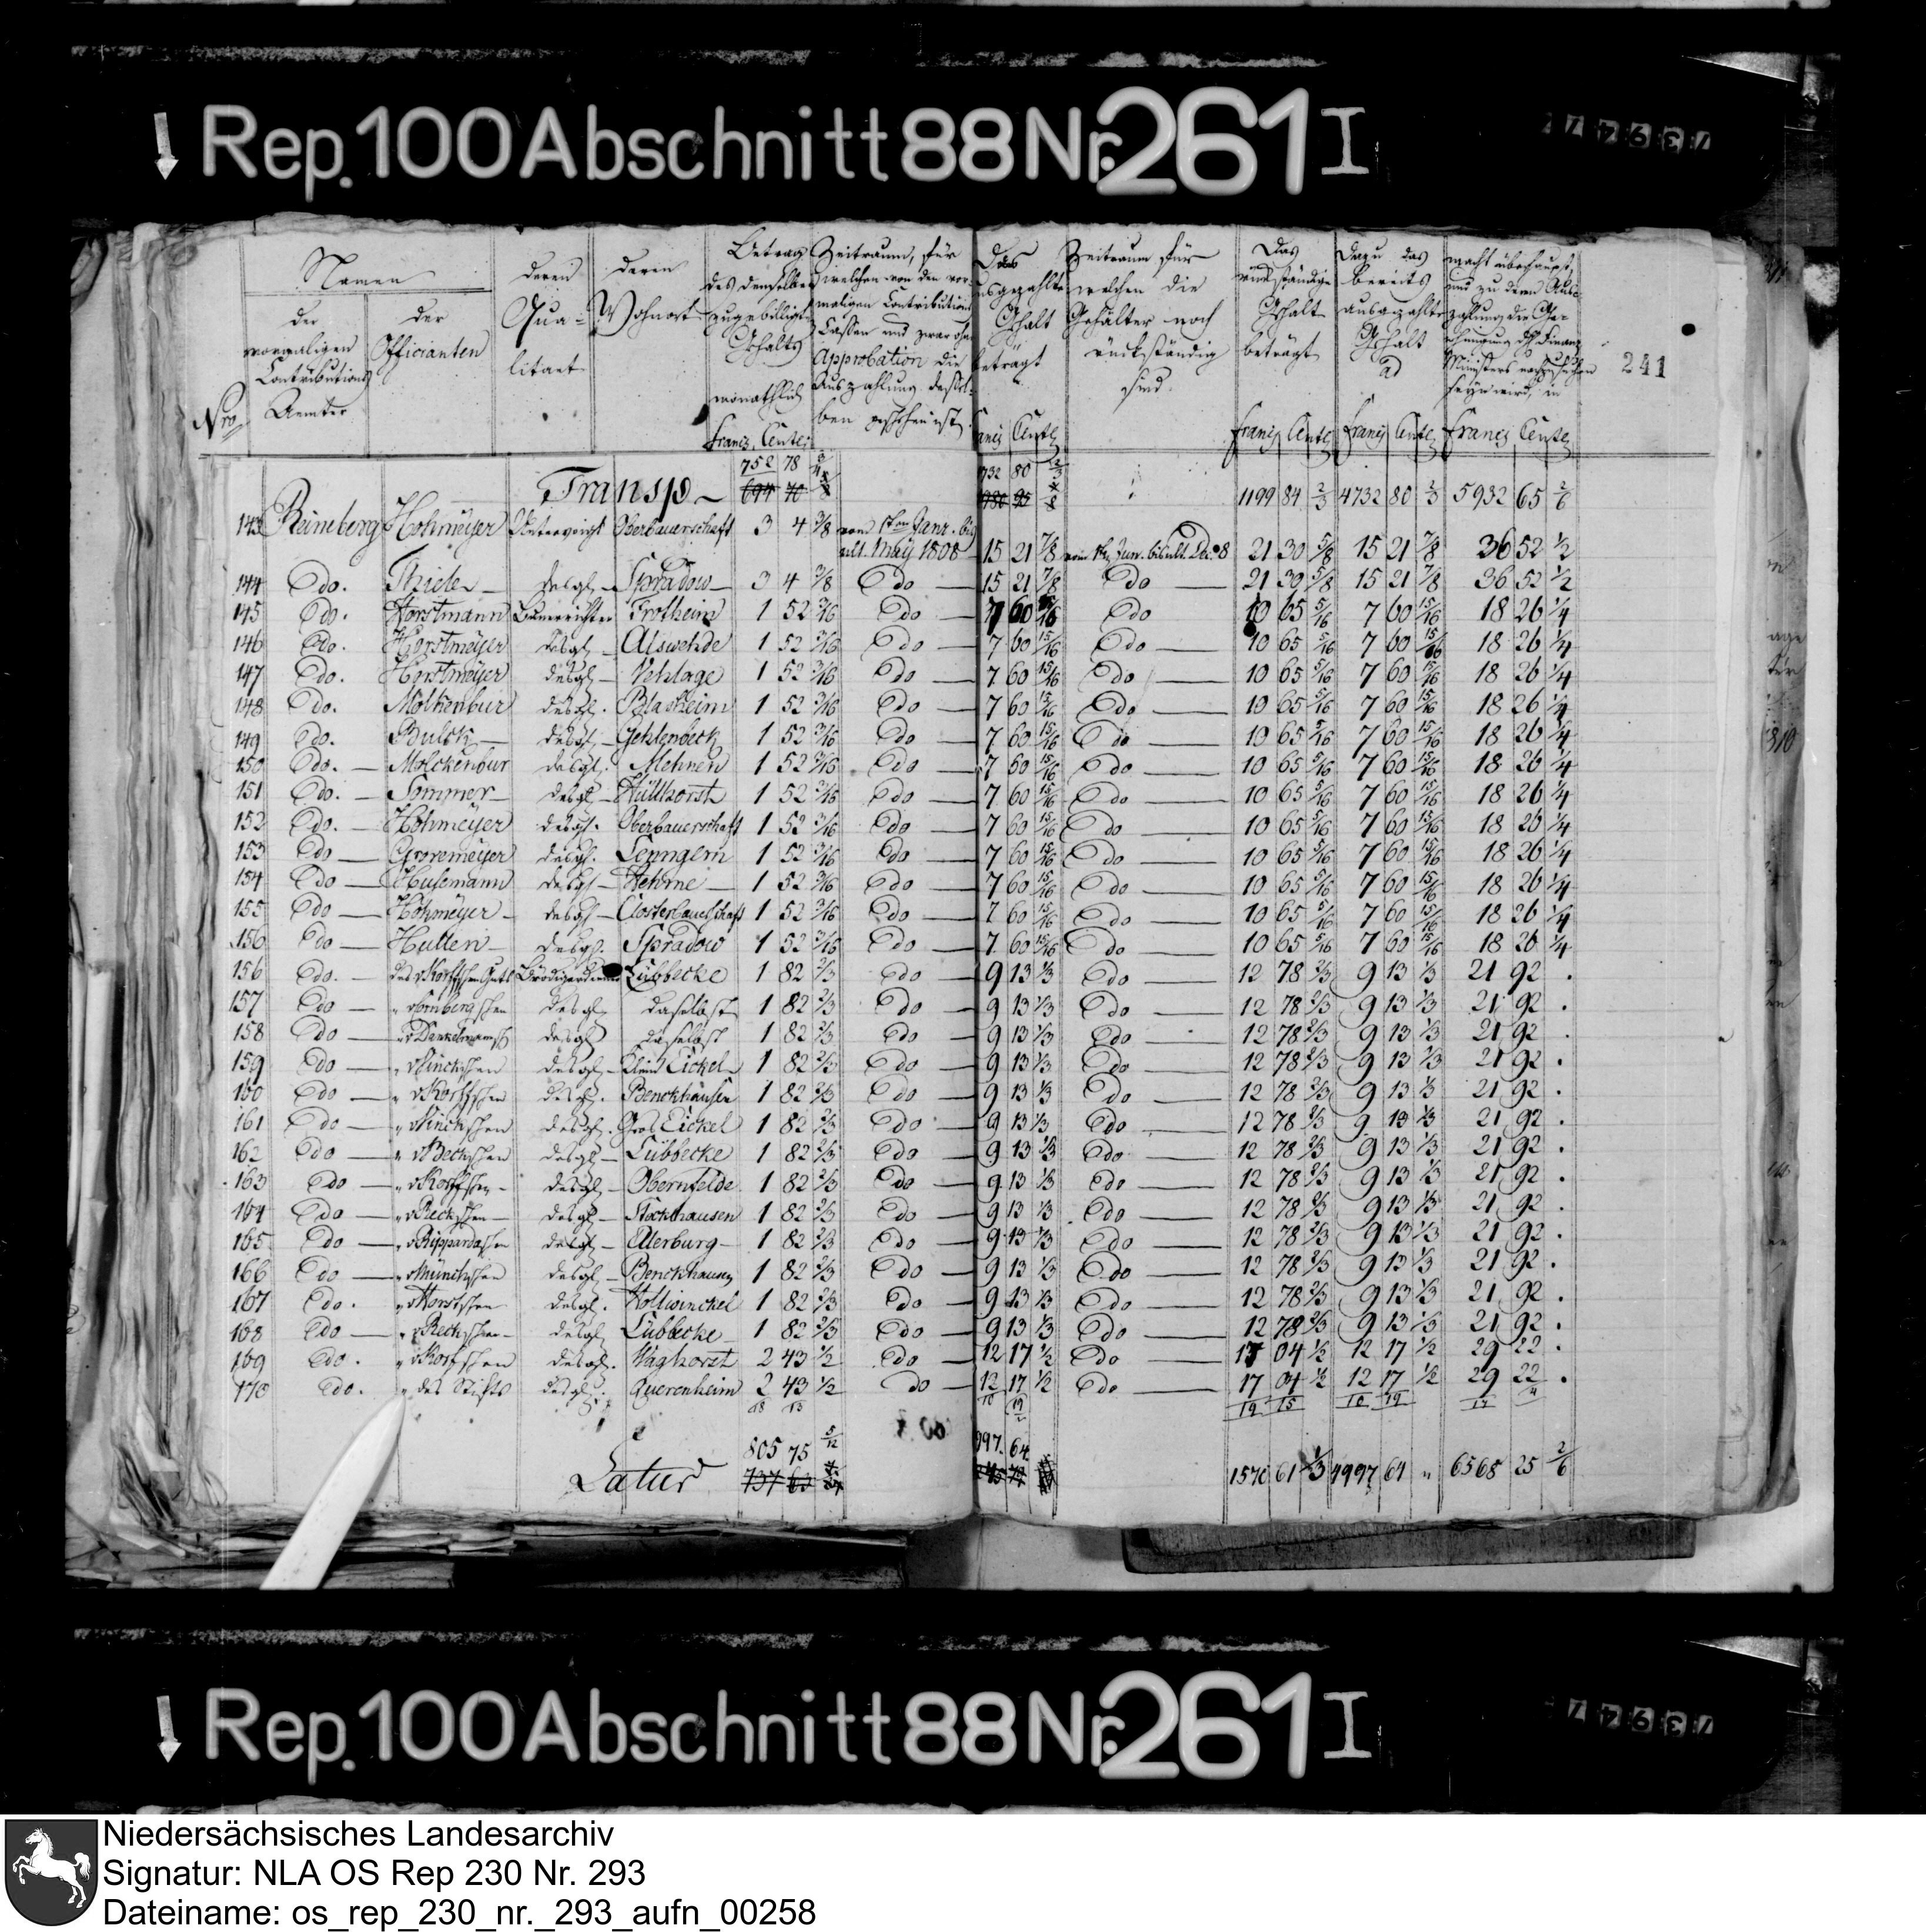 Rep. 100 Abschnitt 88 Nr. 261 I
Namen
der vormaligen Contributions Aemter
der Officianten
deren Qualitaet
deren Wohnort
Betrag des denselben zugebilligten Gehalts monathlich
Zeitraum, für welchen von den vormaligen Contributions Cassen und zwar ohne Approbation die Auszahlung derselben geschehen ist
Das ausgezahlte Gehalt beträgt
Zeitraum für welchen die Gehälter noch rückständig sind.
Das rückständige Gehalt beträgt
Dazu das bereits ausgezahlte Gehalt ad
macht überhaupt,
241
Nro
Francs, Cents
Cents
Francs Cents Francs Cents Francs Cents
Transp 752 78 3/4 732 80 2/3 1199 84 2/3 4732 80 2/3 5932 65 2/6
694 70
143 Reineberg Hohmeyer Untervoigt Oberbauerschaft 3 4 3/8 vom 1ten Janr. bis ult. May 1808 15 21 7/8 vom 1ten Jun. bis ult. Dec. 8 21 30 5/8 15 21 7/8 36 52 1/2
144 do. Thiele desgl. Spradow 3 4 3/8 do 15 21 7/8 do 21 30 5/8 15 21 7/8 36 52 1/2
145 do. Horstmann Bauerrichter Frotheim 1 52 3/16 do 7 60 15/16 do 10 65 5/16 7 60 15/16 18 26 1/4
146 do. Horstmeyer desgl. Alswehde 1 52 3/16 do 7 60 15/16 do 10 65 5/16 7 60 15/16 18 26 1/4
147 do. Horstmeyer desgl. Vehlage 1 52 3/16 do 7 60 15/16 do 10 65 5/16 7 60 15/16 18 26 1/4
148 do. Molkenbur desgl. Blasheim 1 52 3/16 do 7 60 15/16 do 10 65 5/16 7 60 15/16 18 26 1/4
149 do. Bulck desgl. Gehlenbeck 1 52 3/16 do 7 60 15/16 do 10 65 5/16 7 60 15/16 18 26 1/4
150 do. Molckenbur desgl. Mehnen 1 52 3/16 do 7 60 15/16 do 10 65 5/16 7 60 15/16 18 26 1/4
151 do. Sommer desgl. Hüllhorst 1 52 3/16 do 7 60 15/16 do 10 65 5/16 7 60 15/16 18 26 1/4
152 do. Hohmeyer desgl. Oberbauerschaft 1 52 3/16 do 7 60 15/16 do 10 65 5/16 7 60 15/16 18 26 1/4
153 do Grovemeyer desgl. 1 52 3/16 do 7 60 15/16 do 10 65 5/16 7 60 15/16 18 26 1/4
154 do Husemann desgl. Wehme 1 52 3/16 do 7 60 15/16 do 10 65 5/16 7 60 15/16 18 26 1/4
155 do Hohmeyer desgl. Closterbauerschaft 1 52 3/16 do 7 60 15/16 do 10 65 5/16 7 60 15/16 18 26 1/4
156 do Hullen desgl. Spradow 1 52 3/16 do 7 60 15/16 do 10 65 5/16 7 60 15/16 18 26 1/4
156 do. des vKorffschen Guts Lübbecke 1 82 2/3 do 9 13 1/3 do 12 78 2/3 9 13 1/3 21 92 .
157 do desgl. daselbst 1 82 2/3 do 9 13 1/3 do 12 78 2/3 9 13 1/3 21 92 .
158 do desgl daselbst 1 82 2/3 do 9 13 1/3 do 12 78 2/3 9 13 1/3 21 92 .
159 do desgl. Klein Eickel 1 82 2/3 do 9 13 1/3 do 12 78 2/3 9 13 1/3 21 92 .
160 do " vKorffschen desgl. Benckhausen 1 82 2/3 do 9 13 1/3 do 12 78 2/3 9 13 1/3 21 92 .
161 do desgl. Gros Eickel 1 82 2/3 do 9 13 1/3 do 12 78 2/3 9 13 1/3 21 92 .
162 do desgl. Lübbecke 1 82 2/3 do 9 13 1/3 do 12 78 2/3 9 13 1/3 21 92 .
163 do " vKorffschen desgl. Obernfelde 1 82 2/3 do 9 13 1/3 do 12 78 2/3 9 13 1/3 21 92 .
164 do " vReckschen desgl. Stockhausen 1 82 2/3 do 9 13 1/3 do 12 78 2/3 9 13 1/3 21 92 .
165 do desgl. Ellerburg 1 82 2/3 do 9 13 1/3 do 12 78 2/3 9 13 1/3 21 92 .
166 do " vMünchschen desgl. Benckhausen 1 82 2/3 do 9 13 1/3 do 12 78 2/3 9 13 1/3 21 92 .
167 do. " vHorstschen desgl. Hollwinckel 1 82 2/3 do 9 13 1/3 do 12 78 2/3 9 13 1/3 21 92 .
168 do " vReckschen desgl. Lübbecke 1 82 2/3 do 9 13 1/3 do 12 78 2/3 9 13 1/3 21 92 .
169 do. " vKorffschen desgl. Waghorst 2 43 1/2 do 12 17 1/2 do 17 04 1/2 12 17 1/2 29 22 .
170 do. " des Stifts desgl. Querenheim 2 43 1/2 do 12 17 1/2 do 17 04 1/2 12 17 1/2 29 22 .
Latus 805 75 5/12 997. 64 1570 61 1/3 4997 64 " 6568 25 2/6
737 63
Rep. 100 Abschnitt 88 Nr. 261 I
Niedersächsisches Landesarchiv
Signatur: NLA OS Rep 230 Nr. 293
Dateiname: os_rep_230_nr._293_aufn_00258